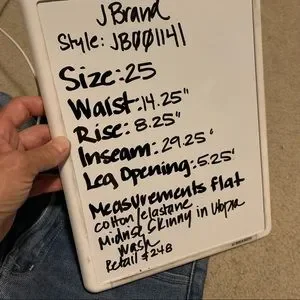 J Brand
Style: JB001141
Size: 25
Waist: 14.25"
Rise: 8.25"
Inseam: 29.25"
Leg Opening: 5.25"
Measurements flat
cotton/elastane
Midrise Skinny in Utopia
Wash
Retail $248